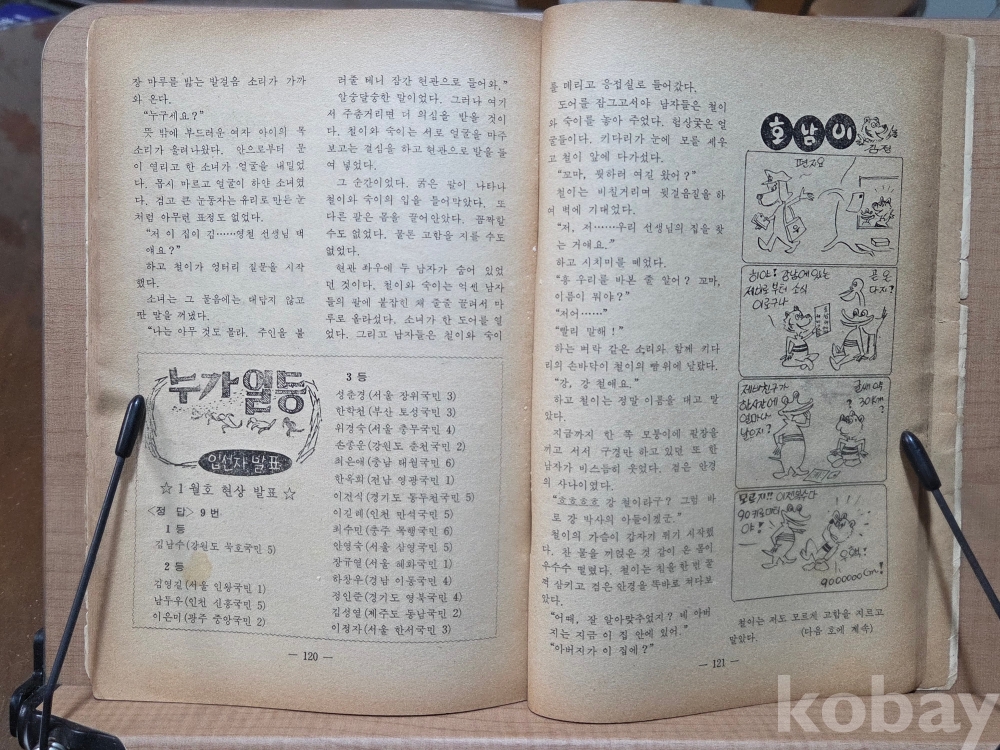 장 마루를 밟는 발걸음 소리가 가까
와 온다.
“누구세요?”
뜻 밖에 부드러운 여자 아이의 목
소리가 울려나왔다. 안으로부터 문
이 열리고 한 소녀가 얼굴을 내밀었
다. 몹시 마르고 얼굴이 하얀 소녀였
다. 검고 큰 눈동자는 유리로 만든 눈
처럼 아무런 표정도 없었다.
“저 이 집이 김……영천 선생님 댁
애요?”
하고 철이가 엉터리 질문을 시작
했다.
소녀는 그 물음에는 대답지 않고
딴 말을 꺼냈다.
“나는 아무 것도 몰라. 주인을 불
러줄 테니 잠간 현관으로 들어와.”
알숭달숭한 말이었다. 그러나 여기
서 주춤거리면 더 의심을 받을 것이
다. 철이와 숙이는 서로 얼굴을 마주
보고는 결심을 하고 현관으로 발을 들
여 넣었다.
그 순간이었다. 굵은 팔이 나타나
철이와 숙이의 입을 틀어막았다. 또
다른 팔은 몸을 끌어안았다. 꼼짝할
수도 없었다. 물론 고함을 지를 수도
없었다.
현관 좌우에 두 남자가 숨어 있었
던 것이다. 철이와 숙이는 억센 남자
들의 팔에 붙잡힌 채 줄줄 끌려서 마
루로 올라섰다. 소녀가 한 도어를 열
었다. 그리고 남자들은 철이와 숙이
누가 일등
입선자 발표
☆1월호 현상 발표☆
<정 답> 9번
1등
김남수(강원도 묵호국민 5)
2등
김영길(서울 인왕국민 1)
남두우(인천 신흥국민 5)
이은미(광주 중앙국민 2)
3등
성춘경(서울 장위국민 3)
한학천(부산 토성국민 3)
위경숙(서울 충무국민 4)
손종운(강원도 춘천국민 2)
최은애(충남 태월국민 6)
한옥희(전남 영광국민 1)
이건식(경기도 동두천국민 5)
이길례(인천 만석국민 5)
최수민(충주 목행국민 6)
안영숙(서울 삼영국민 5)
장규열(서울 혜화국민 1)
하창우(경남 이동국민 4)
정인준(경기도 영북국민 4)
김성열(제주도 동남국민 2)
이정자(서울 한서국민 3)
— 120 —
를 데리고 응접실로 들어갔다.
도어를 잠그고서야 남자들은 철이
와 숙이를 놓아 주었다. 험상궂은 얼
굴들이다. 키다리가 눈에 모를 세우
고 철이 앞에 다가섰다.
“꼬마, 뭣하러 여길 왔어?”
철이는 비칠거리며 뒷걸음질을 하
여 벽에 기대었다.
“저, 저……우리 선생님의 집을 찾
는 거애요.”
하고 시치미를 떼었다.
“흥 우리를 바본 줄 알어? 꼬마,
이름이 뭐야?”
“저어……”
“빨리 말해!”
하는 벼락 같은 소리와 함께 키다
리의 손바닥이 철이의 뺨위에 날랐다.
“강, 강 철애요.”
하고 철이는 정말 이름을 대고 말
았다.
지금까지 한 쪽 모퉁이에 팔짱을
끼고 서서 구경만 하고 있던 또 한
남자가 비스듬히 웃었다. 검은 안경
의 사나이였다.
“흐흐흐흐 강 철이라구? 그럼 바
로 강 박사의 아들이겠군.”
철이의 가슴이 갑자기 뛰기 시작했
다. 찬 물을 끼얹은 것 같이 온 몸이
우수수 떨렸다. 철이는 침을 한 번 꿀
꺽 삼키고 검은 안경을 똑바로 쳐다보
았다.
“어때, 잘 알아맞추었지? 네 아버
지는 지금 이 집 안에 있어.”
“아버지가 이 집에?”
호남이
편지요
히야! 강남에 있는
제비로부터 소식
이로구나
곧 온
다지?
제비친구가
한시간에
얼마나
날으지?
글쎄 약
30Km?
모르지!! 이젠복수다
90키로미터
야!
우액!
9000000Cm!
철이는 저도 모르게 고함을 지르고
말았다. (다음 호에 계속)
— 121 —
kobay